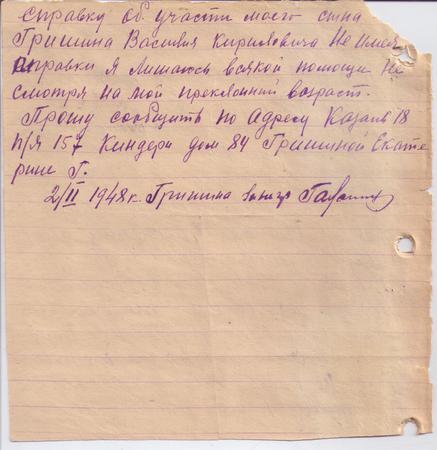 справку об участи моего сына
Гришина Василия Кириловича Не имея
справки я лишаюсь всякой помощи Не
смотря на мой преклонный возраст.
Прошу сообщить по адресу Казань 18
п/я 157 Киндери дом 84 Гришиной Екате
рине Г.
2/II 1948 г. Гришина